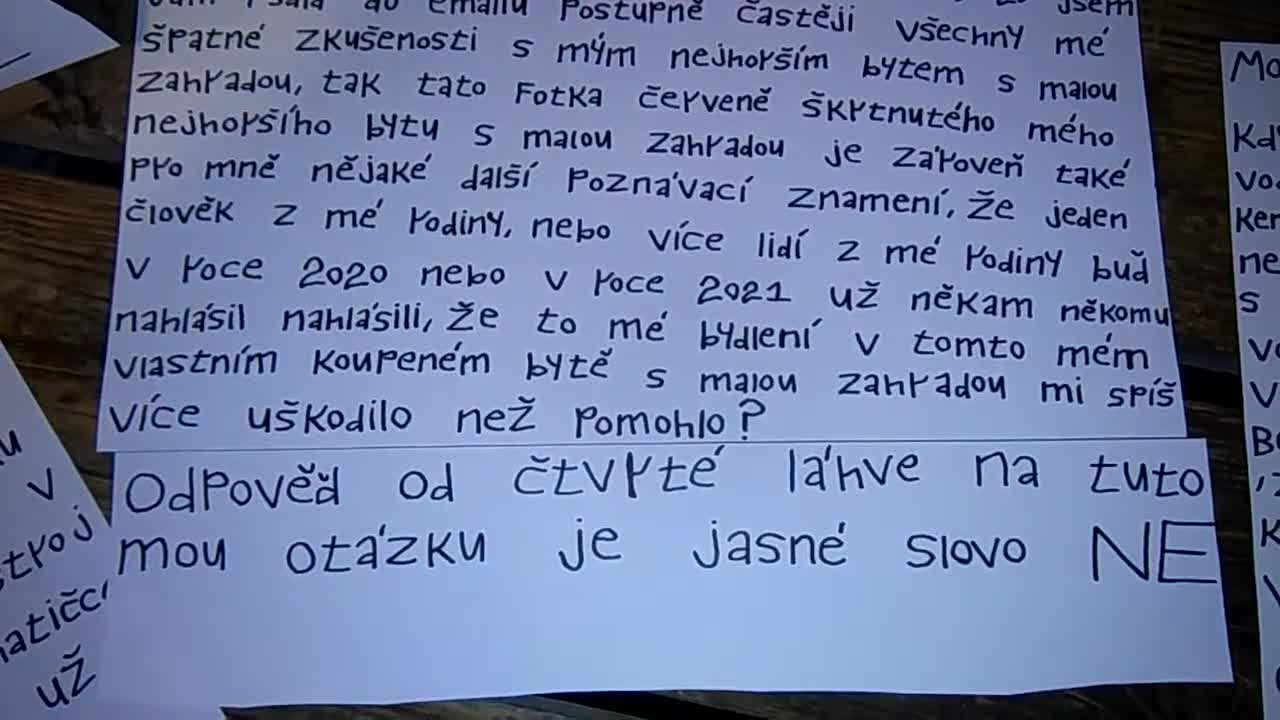 psala do emailu postupně častěji všechny mé
špatné zkušenosti s mým nejhorším bytem s malou
zahradou, tak tato fotka červeně škrtnutého mého
nejhoršího bytu s malou zahradou je zároveň také
pro mně nějaké další poznávací znamení, že jeden
člověk z mé rodiny, nebo více lidí z mé rodiny buď
v roce 2020 nebo v roce 2021 už někam někomu
nahlásil nahlásili, že to mé bydlení v tomto mém
vlastním koupeném bytě s malou zahradou mi spíš
více uškodilo než pomohlo?
Odpověď od čtvrté láhve na tuto
mou otázku je jasné slovo NE
v
už
s